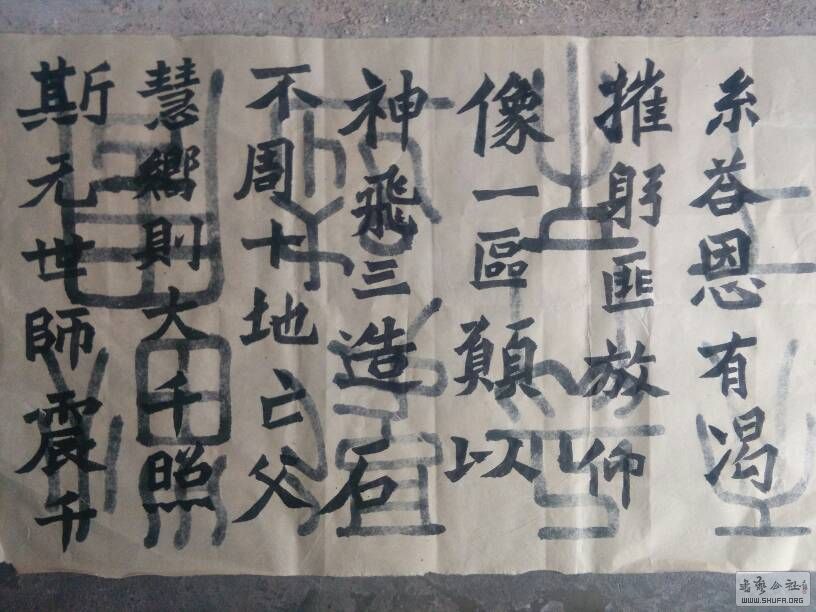 糸荅恩有渴
摧躬匪放仰
像一區願以
神飛三造石
不周十地亡父
慧嚮則大千照
斯元世師震升
書藝公社
WWW.SHUFA.ORG